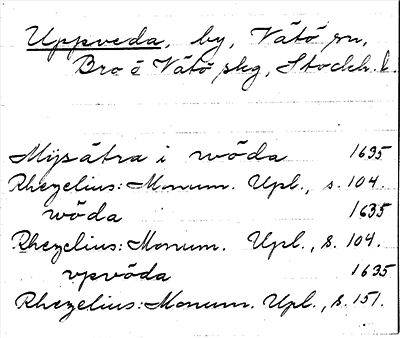 Uppveda, by, Vätö sn,
Bro o Vätö skg, Stockh. l.
Mysätra i wöda 1635
Rhezelius: Monum. Upl., s. 104.
wöda 1635
Rhezelius: Monum. Upl., s. 104.
vpvöda 1635
Rhezelius: Monum. Upl., s. 151.